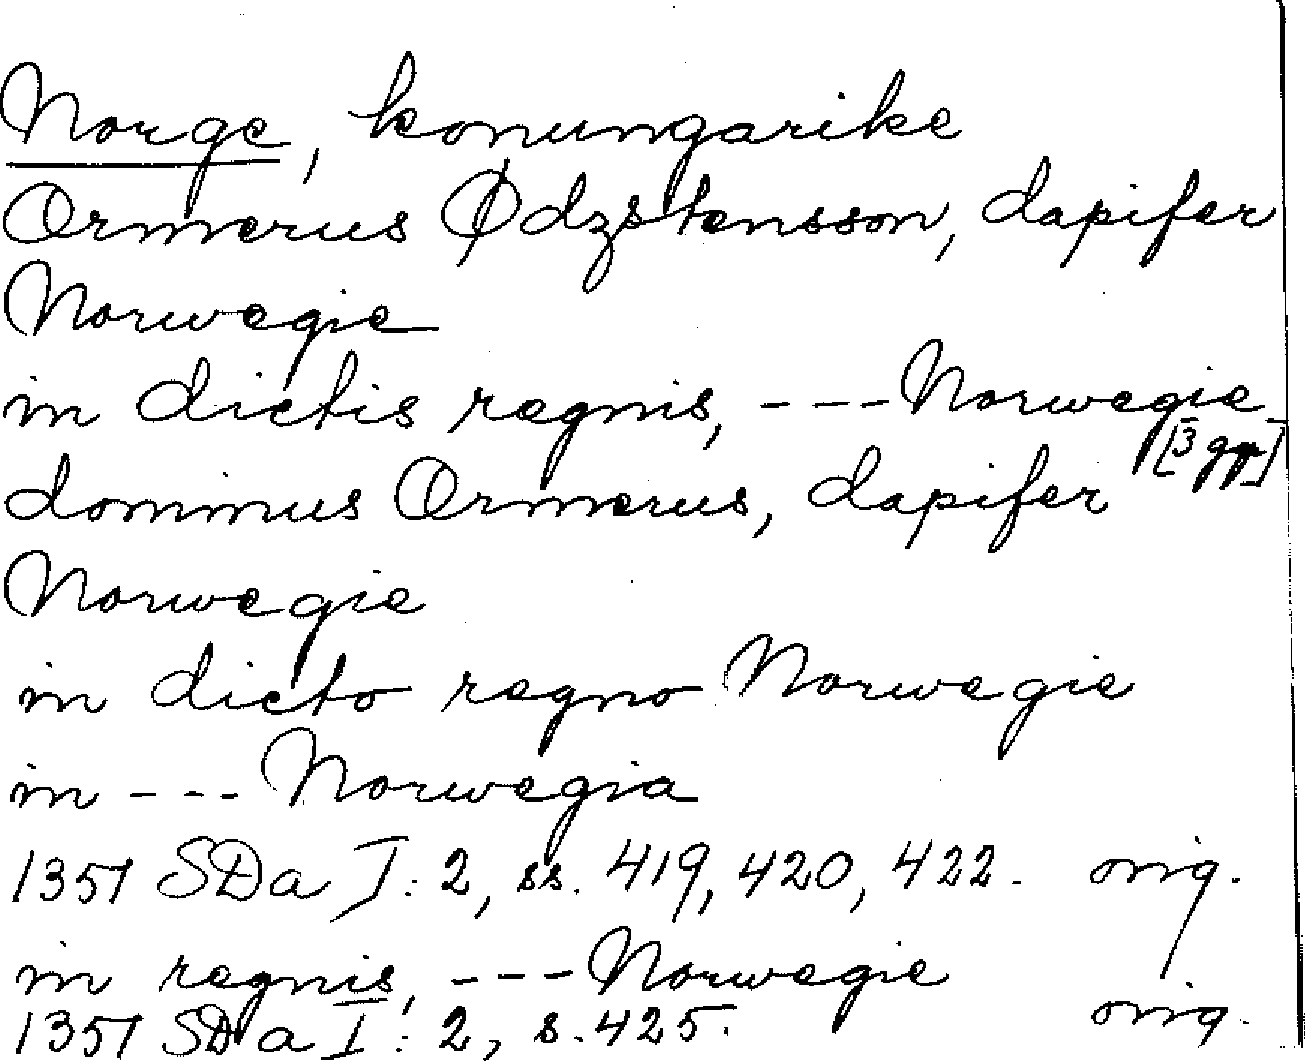 Norge, konungarike
Ormerus Ødzstensson, dapifer
Norwegie
in dictis regnis, --- Norwegie
[3 ggr]
dominus Ormerus, dapifer
Norwegie
in dicto regno Norwegie
in --- Norwegia
1351 SDa I: 2, ss. 419, 420, 422. orig.
in regnis, --- Norwegie
1351 SDa I: 2, s. 425. orig.